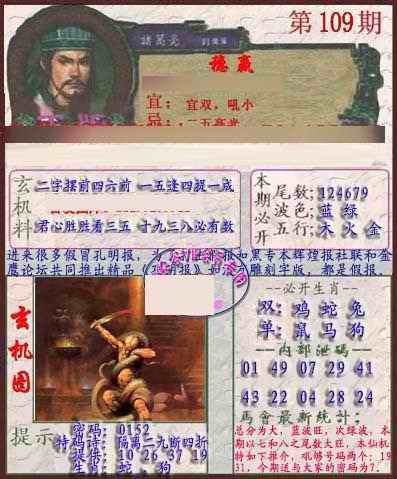 第109期
諸葛亮
稳赢
宜：宜双，吼小
忌：
玄机料
二字摆前四六前 一五逢四提一成
君心胜胜看三五 十九三八必有数
本期必开
尾数；124679
波色；蓝 绿
五行；木 火 金
进来很多假冒孔明报，为了打击假报如黑专本辉煌报社联和金
鹰论坛共同推出精品《孔明报》如没有雕刻字版，都是假报，
玄机图
--必开生肖--
双：鸡 蛇 兔
单：鼠 马 狗
--内部泄码--
01 49 07 29 41
43 22 04 28 24
馬會最新統計：
总分为大，蓝波旺，次绿波，本
期以七和八之尾数大旺，本仙机
特如下推介，吼够号码两个：19
31，今期送与大家的密码为7.
提示
密码：0152
特码诗：隔离二九断四折
提供：10 26 37 19
生肖：蛇、狗